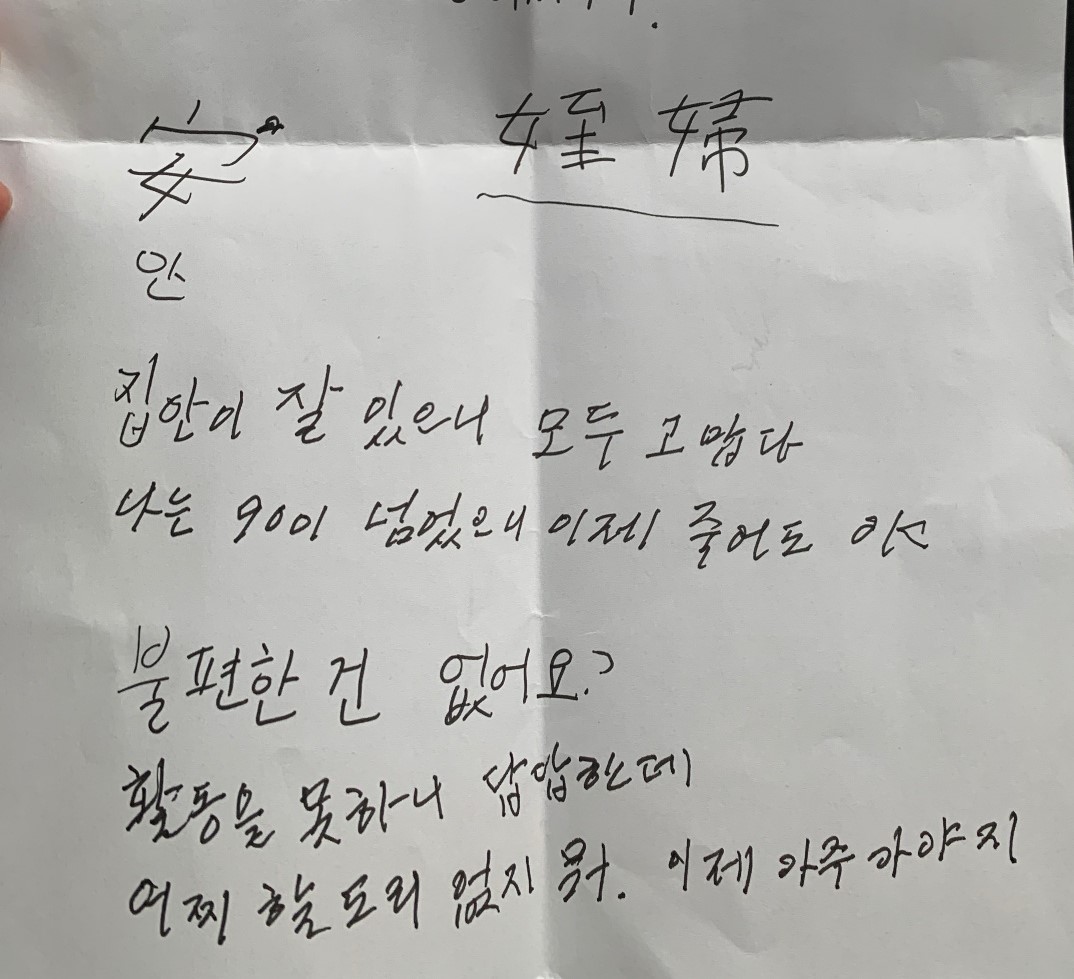 安 姪婦
안
집안이 잘 있으니 모두 고맙다
나는 90이 넘었으니 이제 죽어도
불편한 건 없어요?
활동을 못하니 답답한데
어찌 하는 도리 없지 뭐. 이제 아주 가야지